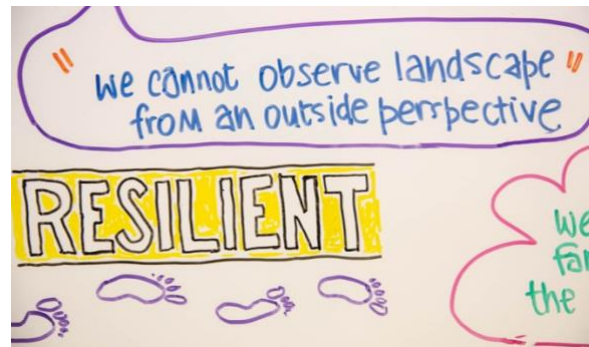 "we cannot observe landscape"
from an outside perspective
RESILIENT
we
the